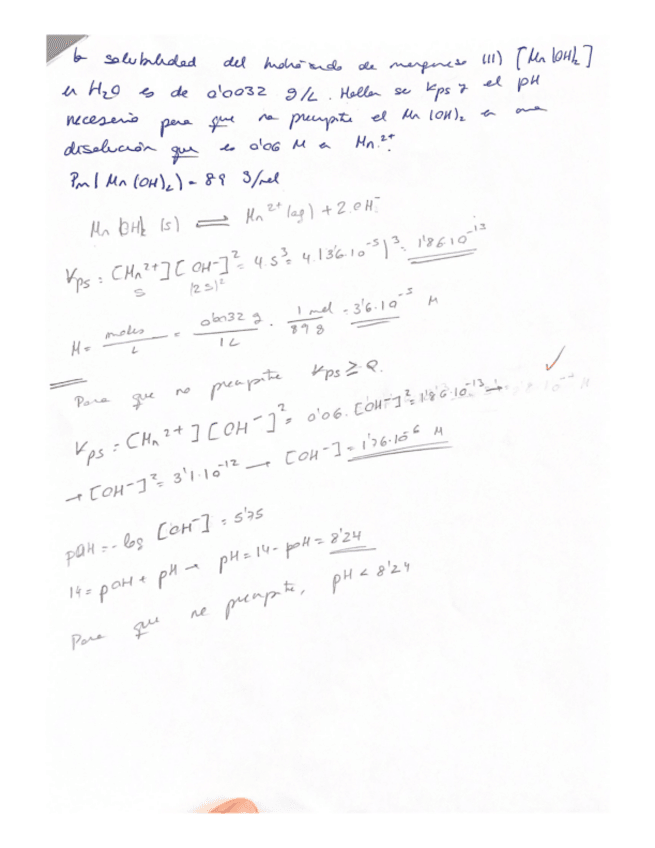 la solubilidad del hidróxido de manganeso (II) [Mn(OH)₂]
en H₂O es de 0'0032 g/L. Hallar se Kps y el pH
necesario para que no precipite el Mn(OH)₂ en una
disolución que es 0'06 M en Mn²⁺.
Pm(Mn(OH)₂) = 89 g/mol
Mn(OH)₂ (s) ⇌ Mn²⁺(aq) + 2OH⁻
Kps = [Mn²⁺][OH⁻]² = 4s³ = 4·(3'6·10⁻⁵)³ = 1'86·10⁻¹³
s (2s)²
M = moles/L = 0'0032 g/1L · 1 mol/89 g = 3'6·10⁻⁵ M
Para que no precipite Kps ≥ Q.
Kps = [Mn²⁺][OH⁻]² = 0'06·[OH⁻]² = 1'86·10⁻¹³ →
→ [OH⁻]² = 3'1·10⁻¹² → [OH⁻] = 1'76·10⁻⁶ M
pOH = -log [OH⁻] = 5'75
14 = pOH + pH → pH = 14 - pOH = 8'24
Para que no precipite, pH < 8'24